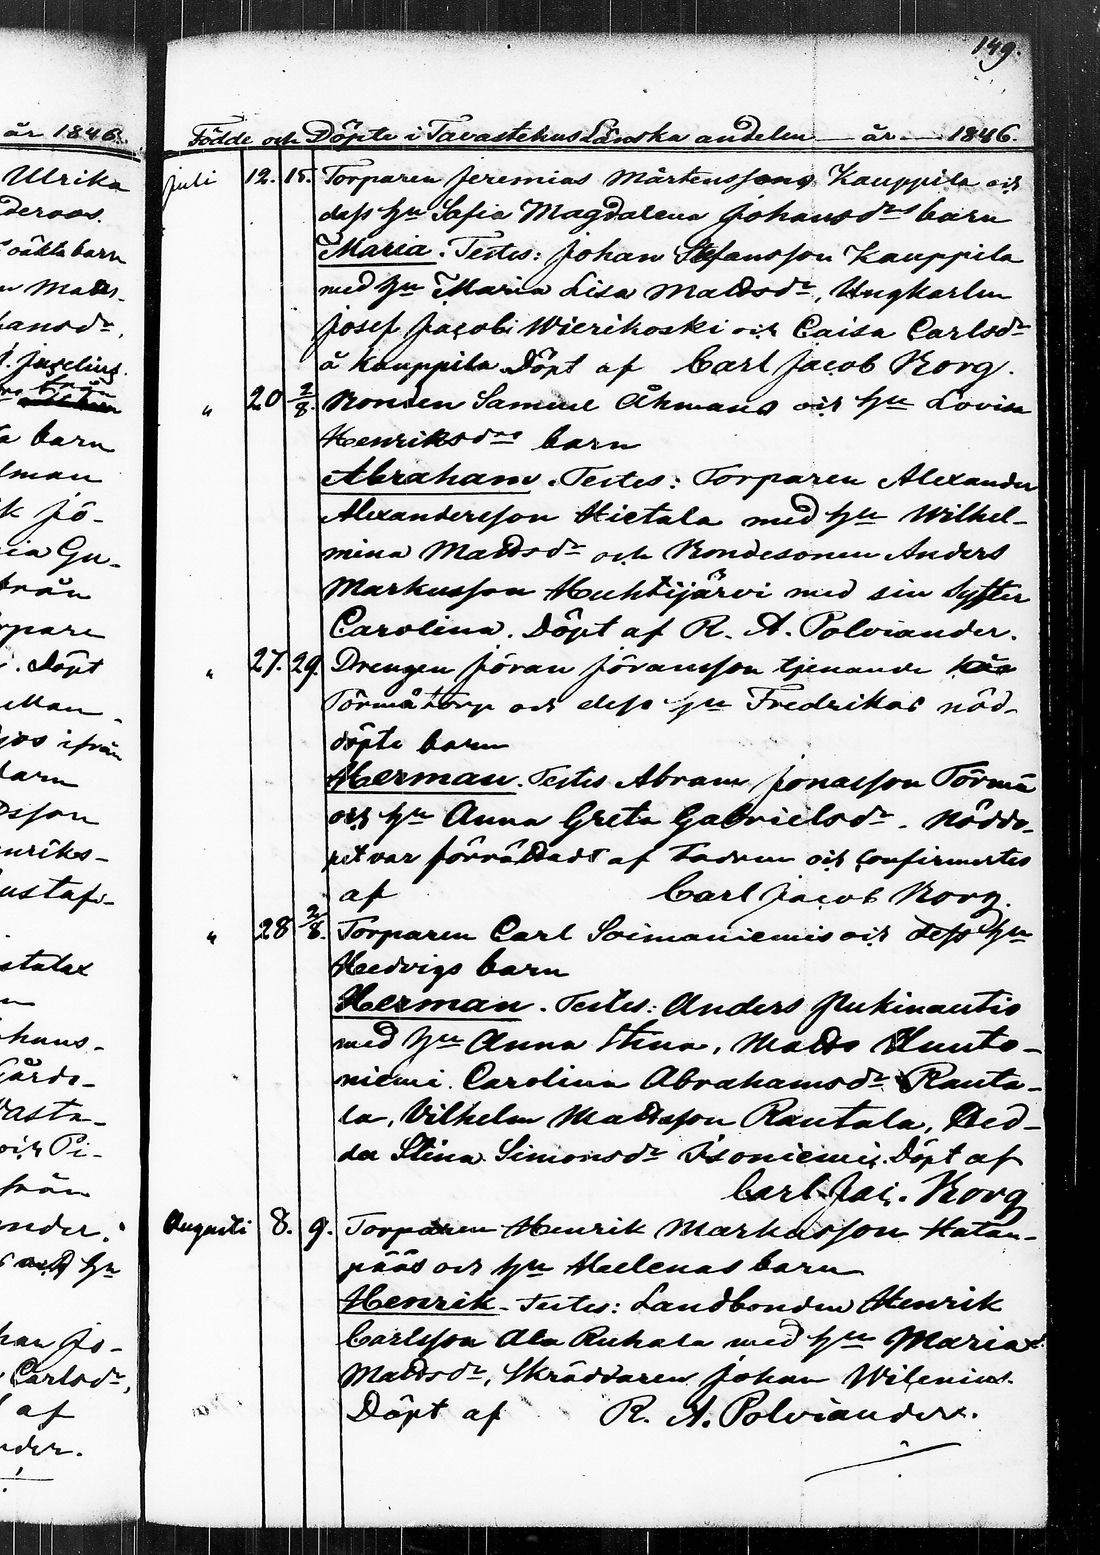 149.
år 1846.
Födde och Döpte i Tavastehus Länska andelen år 1846.
Ulrika
oäkta barn
barn
af
Döpt
från
Carlsdr,
Juli 12. 15. Torparen Jeremias Mårtenssons Kauppila och
dess hu Sofia Magdalena Johansdrs barn
Maria. Testes: Johan Stefansson Kauppila
med hu Maria Lisa Mattsdr, Ungkarlen
Josef Jacobi Wierikoski och Caisa Carlsdr
å Kauppila Döpt af Carl Jacob Korg.
" 20 2/8. Bonden Samuel Åkmans och hu Lovisa
Henriksdrs barn
Abraham. Testes: Torparen Alexander
Alexandersson Hietala med hu Wilhel-
mina Mattsdr och Bondesonen Anders
Markusson Huhtijärvi med sin Syster
Carolina. Döpt af R. A. Polviander.
" 27. 29. Drengen Jöran Jöransson tjenande
Törmä torp och dess hu Fredrikas nöd-
döpte barn
Herman. Testes Abram Jonasson Törmä
och hu Anna Greta Gabrielsdr. Nöddo-
pet var förrättadt af Fadren och confirmertes
af Carl Jacob Korg.
" 28 2/8. Torparen Carl Soimaniemis och dess hu
Hedvigs barn
Herman. Testes: Anders Pukinautio
med hu Anna Stina, Matts Uuto-
niemi. Carolina Abrahamsdr Ranta-
la, Vilhelm Mattsson Rautala, Hed-
da Stina Simonsdr Isoniemi. Döpt af
Carl Jac. Korg
Augusti 8. 9. Torparen Henrik Markusson Hatan-
pääs och hu Helenas barn
Henrik. Testes: Landbonden Henrik
Carlsson Ala Ruhala med hu Maria
Mattsdr, Skräddaren Johan Wilenius.
Döpt af R. A. Polviander.